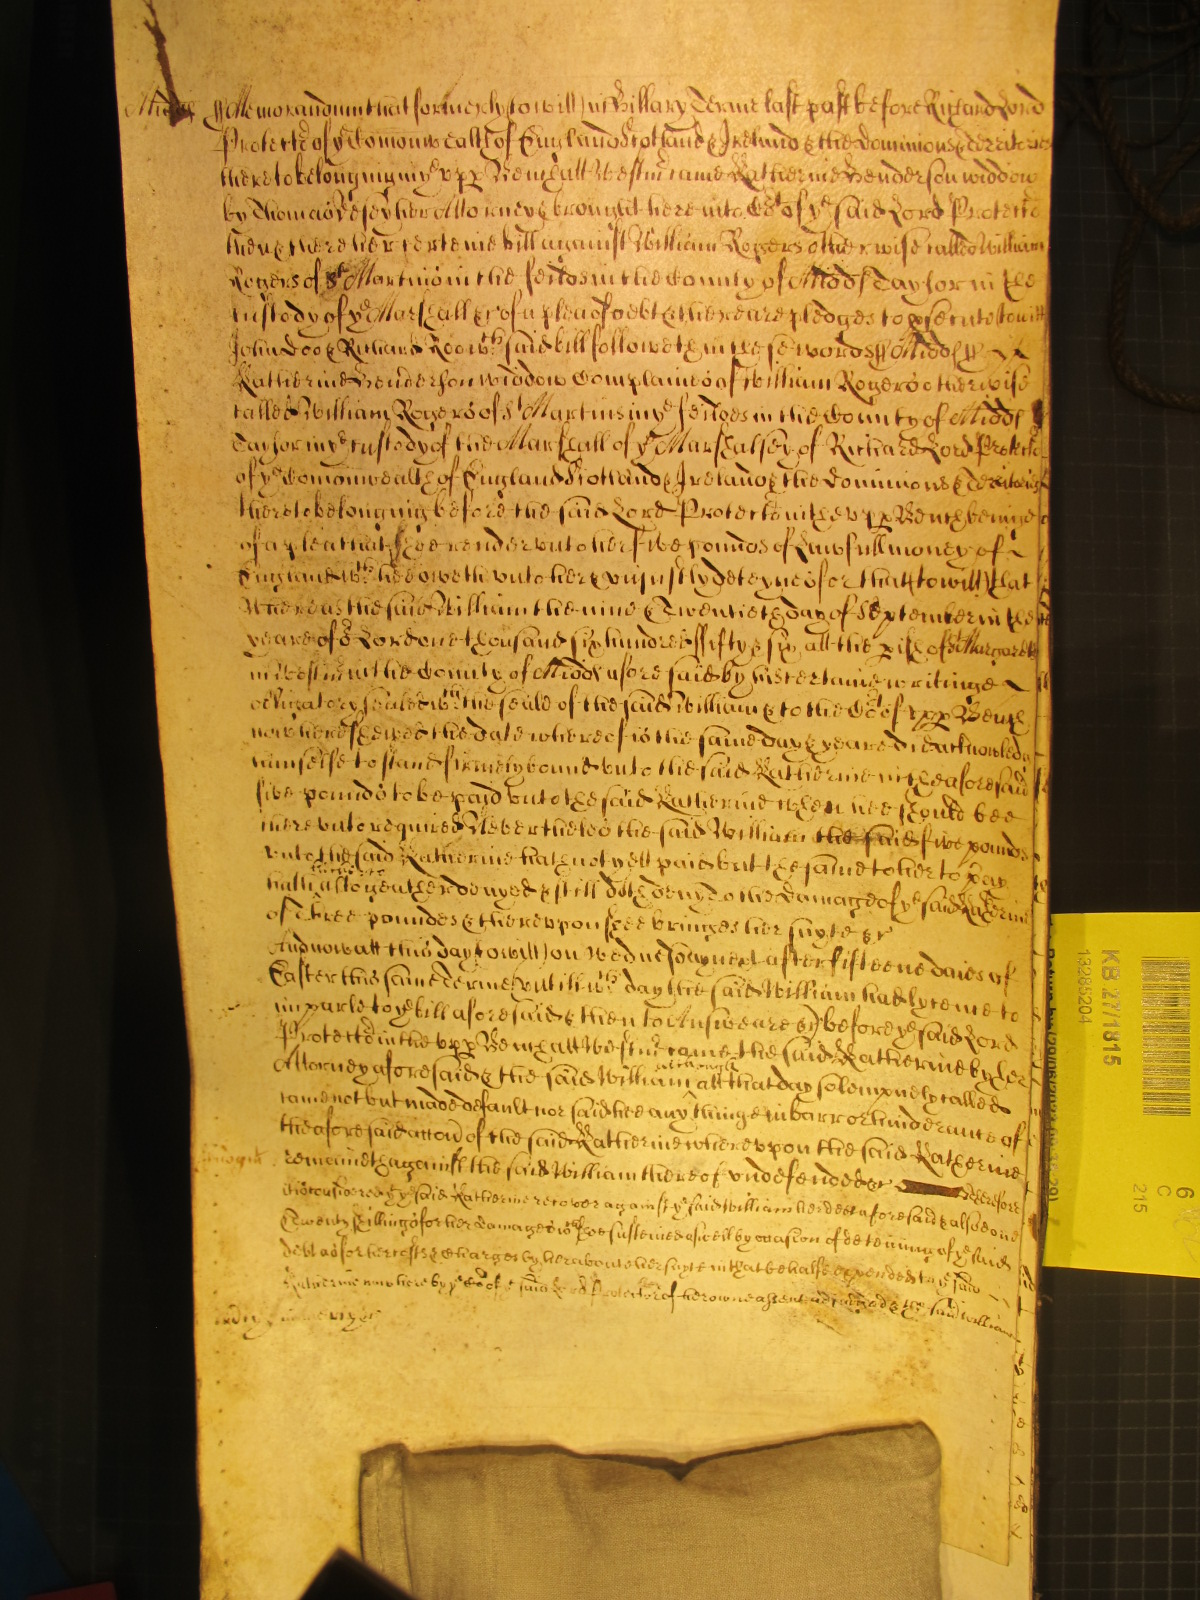 Midds ss Memorandum that formerly (to witt) in Hillary Terme last past before Richard Lord
Protector of ye Comonwealth of England Scotland & Ireland & the Dominions & Territories
thereto belonging in ye upp Bench att Westmr came Katherine Henderson widdow
by Thomas Vesey her Attorney & brought here into Cot of ye said Lord Protector
then & there her certeine bill against William Rogers otherwise called William
Rogers of St Martins in the feilds in the County of Midds Taylor in the
Custody of ye Marshall &c of a plea of debt & there are pledges to psecute to witt
John Doo & Richard Roo wch said bill followeth in these words ss Midds ss
Katherine Henderson widdow Complaines of William Rogers otherwise
called William Rogers of St Martins in ye feildes in the County of Midds
Taylor in ye custody of the Marshall of ye Marshalsey of Richard Lord Protector
of ye Comonwealth of England Scotland & Ireland & the Dominions & Territories
thereto belonging before the said Lord Protector in the upp Bench being
of a plea that hee render unto her five pounds of lawfull money of
England wch hee oweth unto her & unjustly deteynes for that (to witt) that
Whereas the said William the nine & Twentieth day of September in the
yeare of or Lord one thousand six hundred fifty & six att the pish of St Margaretts
in Westmr in the County of Midds aforesaid by his certaine writinge
obligatory sealed wth the seale of the said William & to the Cot of upp Bench
now here shewed the date whereof is the same day & yeare did acknowledg
himselfe to stand firmely bound unto the said Katherine in the aforesaid
five pounds to be paid unto the said Katherine when hee should bee
thereunto required Neverthelesse the said William the said five pounds
unto the said Katherine hath not yett paid but the same to her to pay
hath altogeather denyed & still doth deny to the Damage of ye said Katherine
of Three poundes & thereupon shee bringes her suyte &c
And now att this day (to witt) on Wednesday next after fifteene daies of
Easter this same Terme untill wch day the said William had lycence to
imparle to ye bill aforesaid & then to Answeare &c before ye said Lord
Protector in the upp Bench att Westmr came the said Katherine by her
Attorney aforesaid & the said William although att that day solempnely called
came not but made default nor said hee any thinge in barr or hinderance of
the aforesaid accon of the said Katherine whereupon the said Katherine
remaineth against the said William thereof undefended &c Therefore
it is considered yt ye said Katherine recover against ye said William her debt aforesaid & alsoe one
& Twenty shillings for her damages wch shee susteined aswell by occasion of deteining of ye said
debt as for her costs & charges by her about her suyte in that behalfe expended to ye said
Katherine now here by ye Cot of ye said Lord Protector of her owne assent adjudged & the said William
in Mercy &c
KB 27/1815
13285204
6
C
215